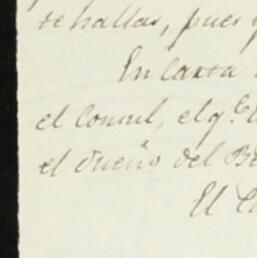 se hallas, pues
En Carta
el Consul, el q.e
el dueño del
El